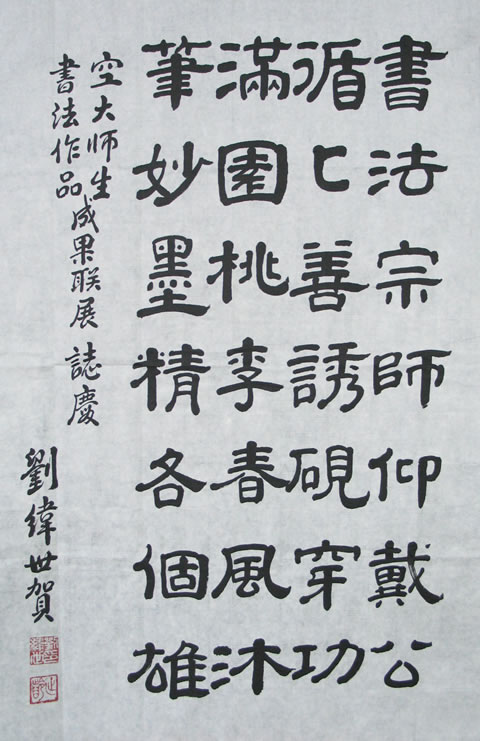 書法宗師仰戴公
循〻善誘硯穿功
滿園桃李春風沐
筆妙墨精各個雄
空大师生
書法作品
成果联展 誌慶
劉緯世賀